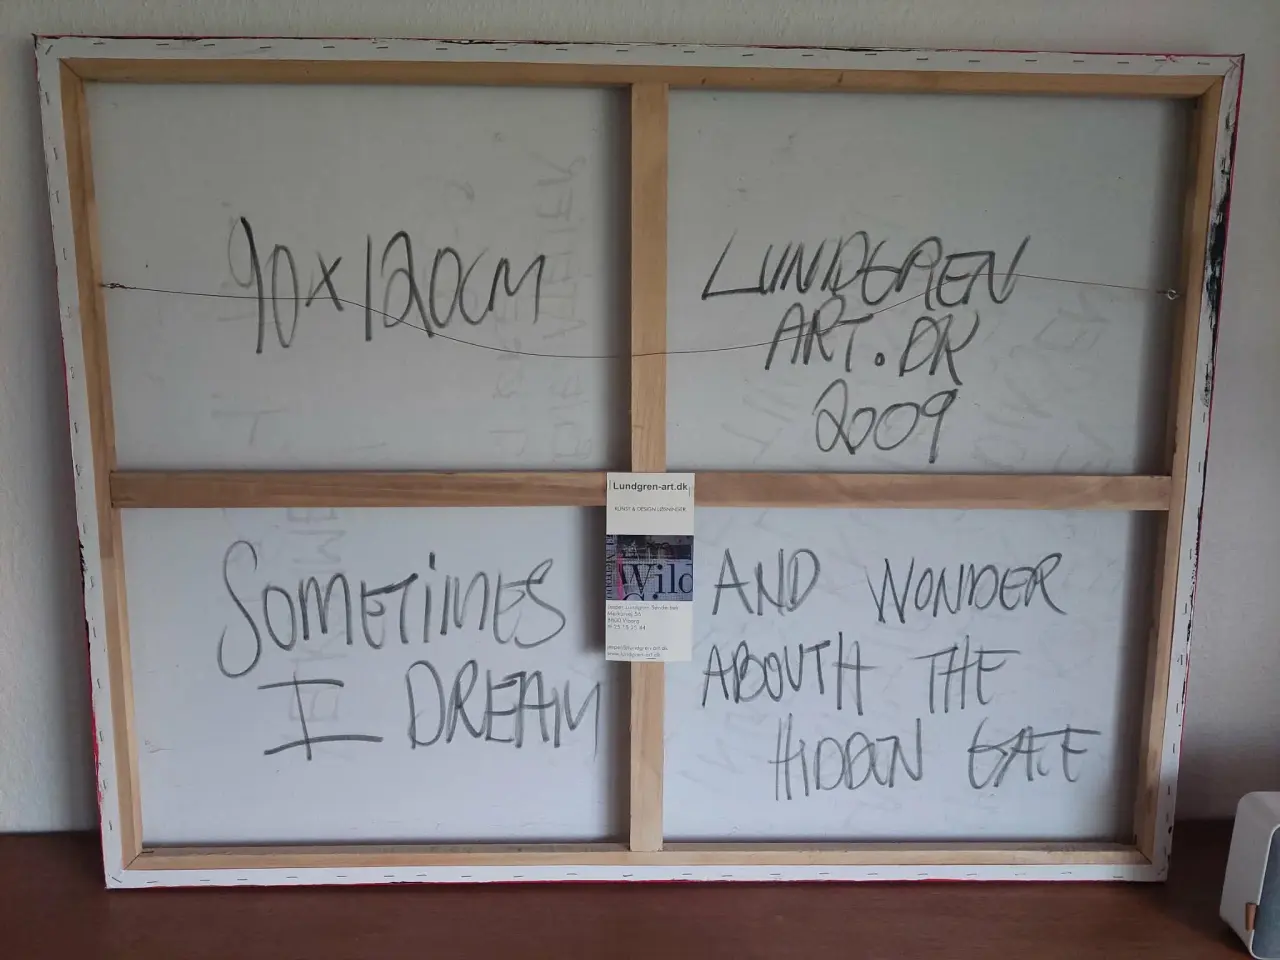 90x120cm
LUNDGREN
ART.DK
2009
SOMETIMES
I DREAM
AND WONDER
ABOUTH THE
HIDDEN GATE
Lundgren-art.dk
KUNST & DESIGN LØSNINGER
Wild
Jesper Lundgren
8800 Viborg
www.lundgren-art.dk